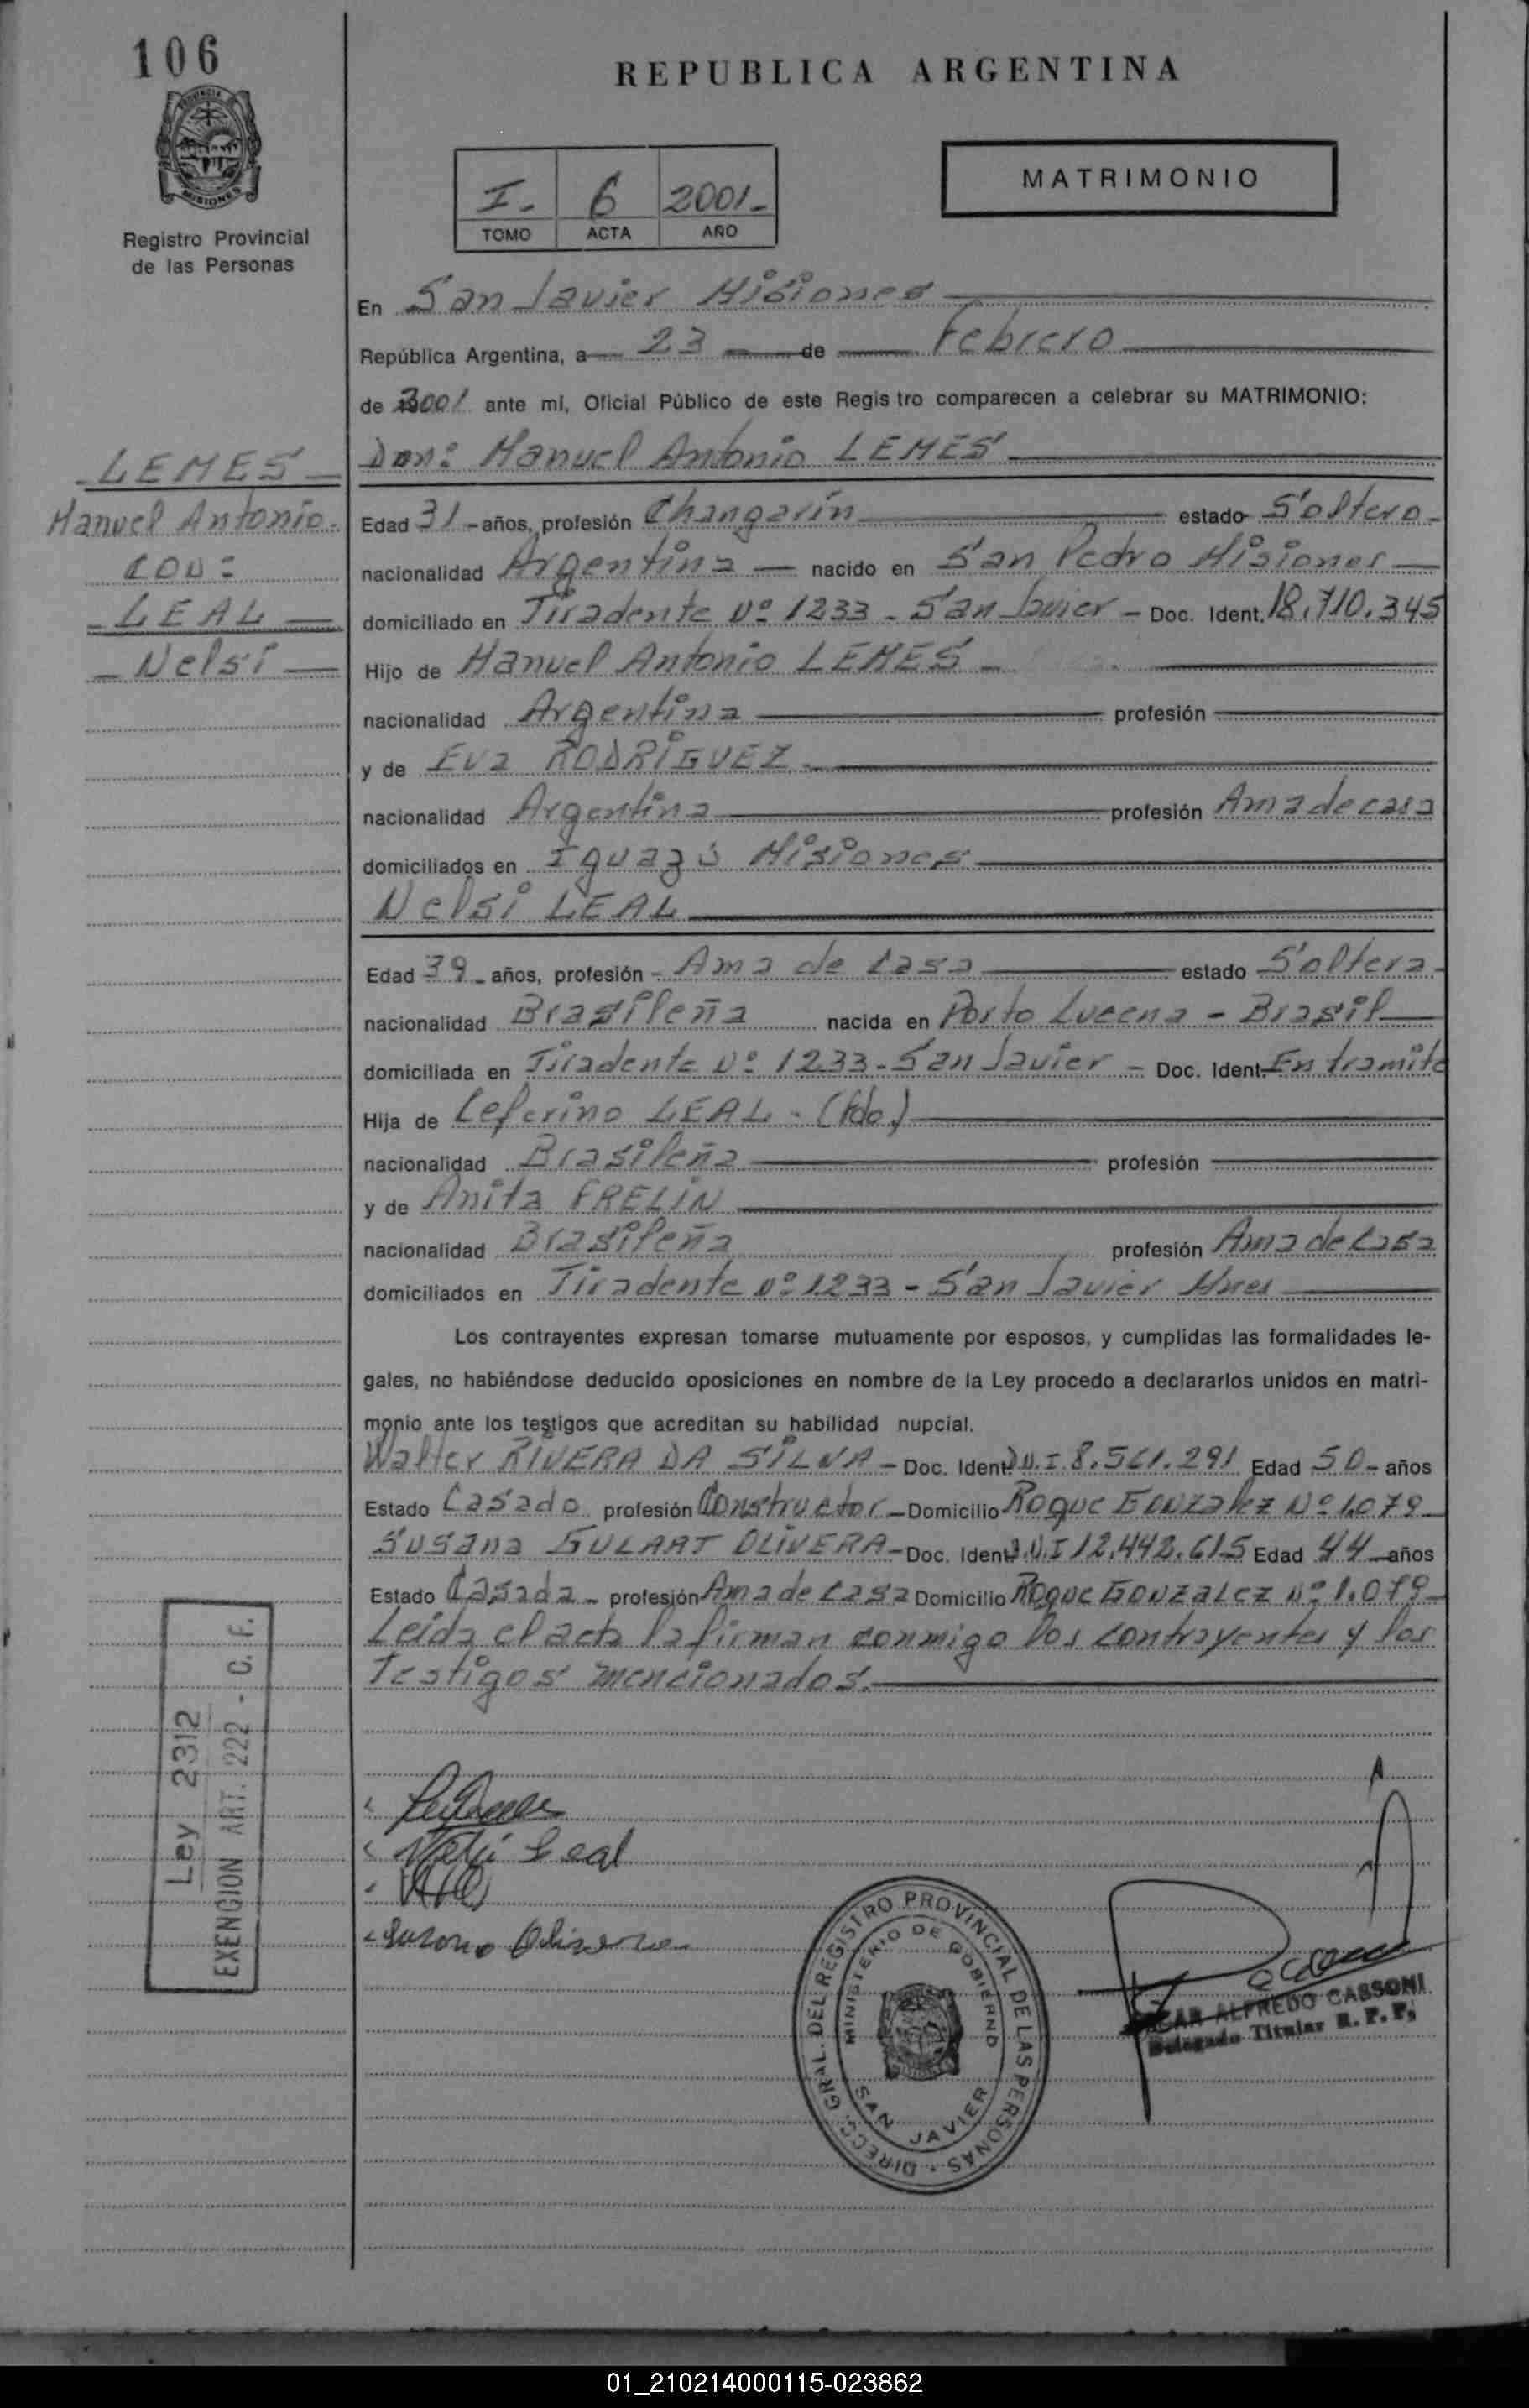 106
REPUBLICA ARGENTINA
PROVINCIA
MISIONES
Registro Provincial
de las Personas
MATRIMONIO
I. 6 2001-
TOMO ACTA AÑO
En San Javier Misiones
República Argentina, a 23 de Febrero
de 2001 ante mi, Oficial Público de este Regis tro comparecen a celebrar su MATRIMONIO:
LEMES
Manuel Antonio
CON:
LEAL
Nelsi
Don: Manuel Antonio LEMES
Edad 31 - años, profesión Changarín estado Soltero
nacionalidad Argentina nacido en San Pedro Misiones
domiciliado en Tiradente Nº 1233 - San Javier - Doc. Ident. 18.710.345
Hijo de Manuel Antonio LEMES
nacionalidad Argentina profesión
y de Eva RODRIGUEZ
nacionalidad Argentina profesión Ama de casa
domiciliados en Iguazú Misiones
Nelsi LEAL
Edad 39 - años, profesión - Ama de casa estado Soltera
nacionalidad Brasileña nacida en Porto Lucena - Brasil
domiciliada en Tiradente Nº 1233 - San Javier - Doc. Ident. En tramite
Hija de Ceferino LEAL - (fdo.)
nacionalidad Brasileña profesión
y de Anita FRELIN
nacionalidad Brasileña profesión Ama de Casa
domiciliados en Tiradente Nº 1233 - San Javier Mnes
Los contrayentes expresan tomarse mutuamente por esposos, y cumplidas las formalidades le-
gales, no habiéndose deducido oposiciones en nombre de la Ley procedo a declararlos unidos en matri-
monio ante los testigos que acreditan su habilidad nupcial.
Walter RIVERA DA SILVA - Doc. Ident. D.N.I 8.561.291 Edad 50 - años
Estado Casado profesión Constructor - Domicilio Roque GONZalez Nº 1.079
Susana GULART OLIVERA - Doc. Ident. D.N.I 12.442.615 Edad 44 años
Estado Casada - profesión Ama de Casa Domicilio Roque GONZALEZ Nº 1.079
Leida el acta la firman conmigo los contrayentes y los
Testigos mencionados.
Ley 2312
EXENCION ART. 222 - C. F.
Leal
Susana Olivera
DIRECC. GRAL. DEL REGISTRO PROVINCIAL DE LAS PERSONAS
MINISTERIO DE GOBIERNO
SAN JAVIER
ALFREDO CASSONI
Delegado Titular R. P. P.
01_210214000115-023862